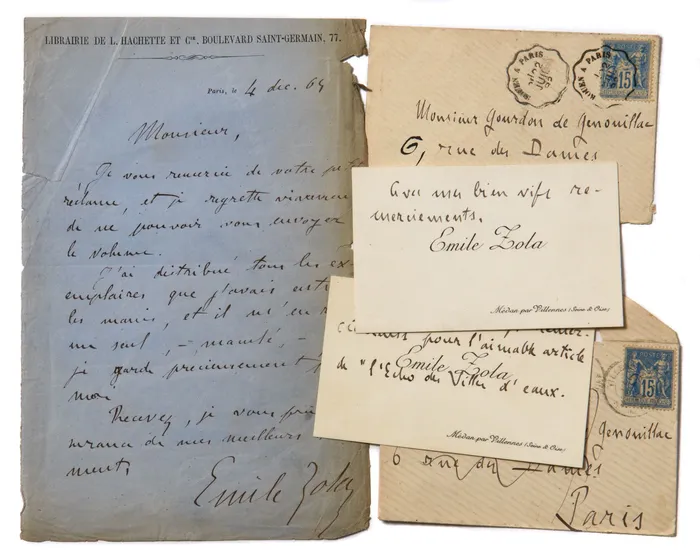 LIBRAIRIE DE L. HACHETTE ET Cie, BOULEVARD SAINT-GERMAIN, 77.
Paris, le 4 dec. 64
Monsieur,
Je vous remercie de votre petite
réclame, et je regrette vivement
de ne pouvoir vous envoyer
le volume.
J'ai distribué tous les ex-
emplaires que j'avais entre
les mains, et il m'en
un seul, –, maculé, –
je garde précieusement
moi
Recevez, je vous prie
de mes meilleurs
ments
Emile Zola
ROUEN A PARIS
ROUEN A PARIS
15
Monsieur Gourdon de Genouillac
6, rue des Dames
Avec mes bien vifs re-
merciements.
Emile Zola
Médan par Villennes (Seine & Oise)
pour l'aimable article
Emile Zola
de "l'Echo des Villes d'eaux.
Médan par Villennes (Seine & Oise)
15
Genouillac
6 rue des Dames
Paris